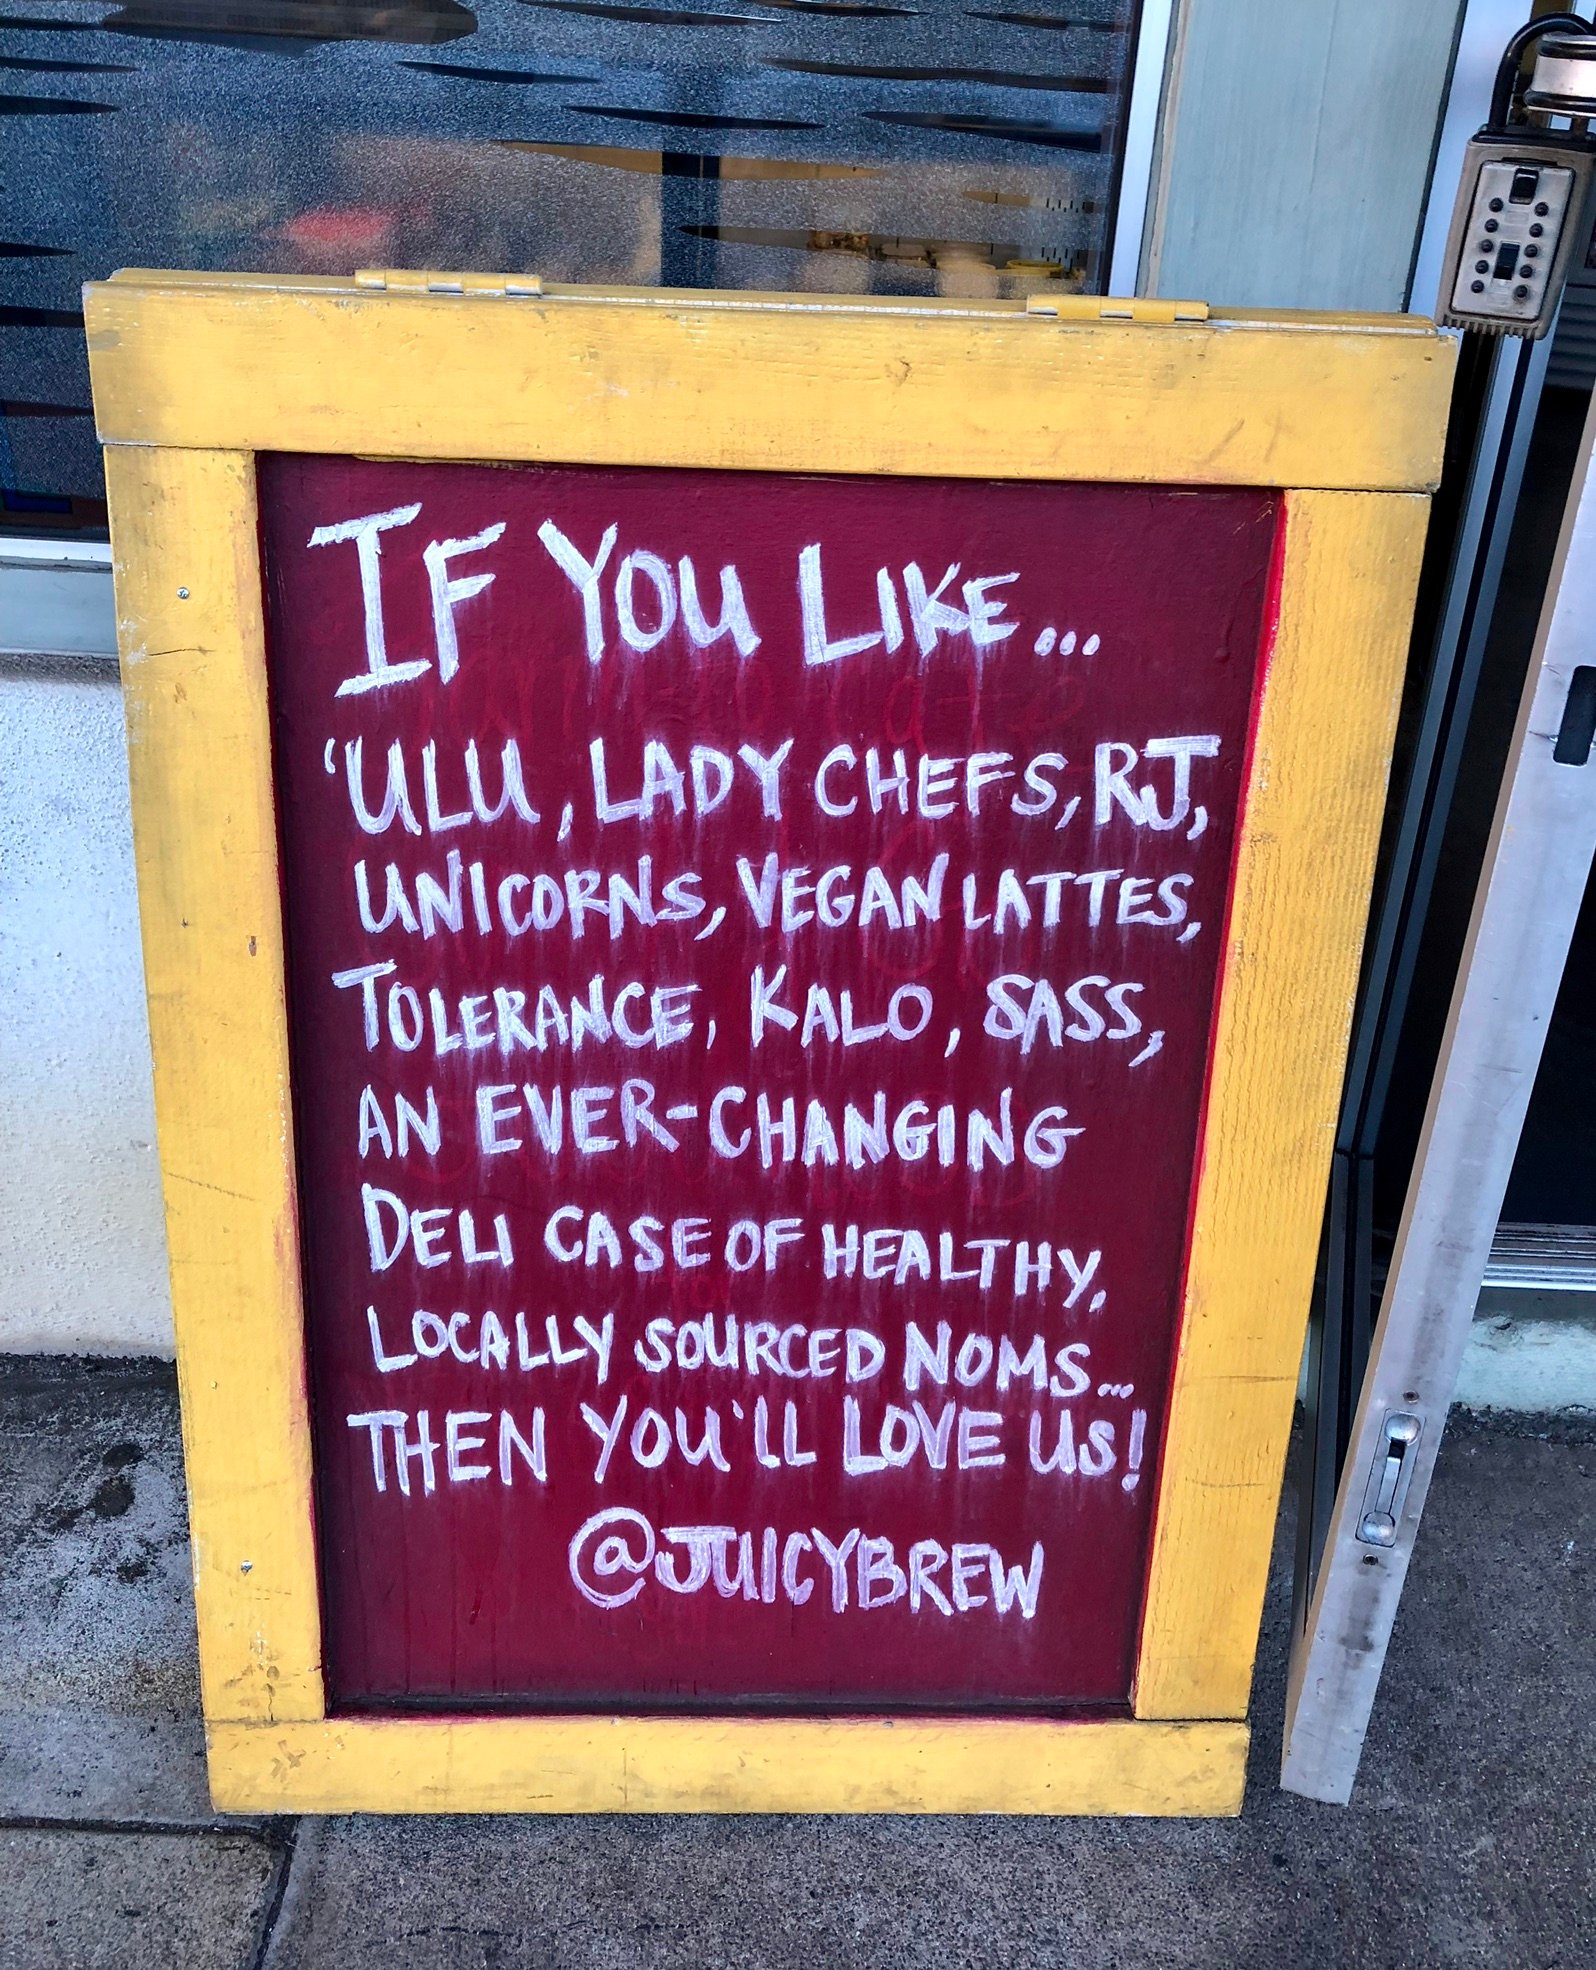 IF YOU LIKE...
'ULU, LADY CHEFS, RJ,
UNICORNS, VEGAN LATTES,
TOLERANCE, KALO, SASS,
AN EVER-CHANGING
DELI CASE OF HEALTHY,
LOCALLY SOURCED NOMS...
THEN YOU'LL LOVE US!
@JUICYBREW